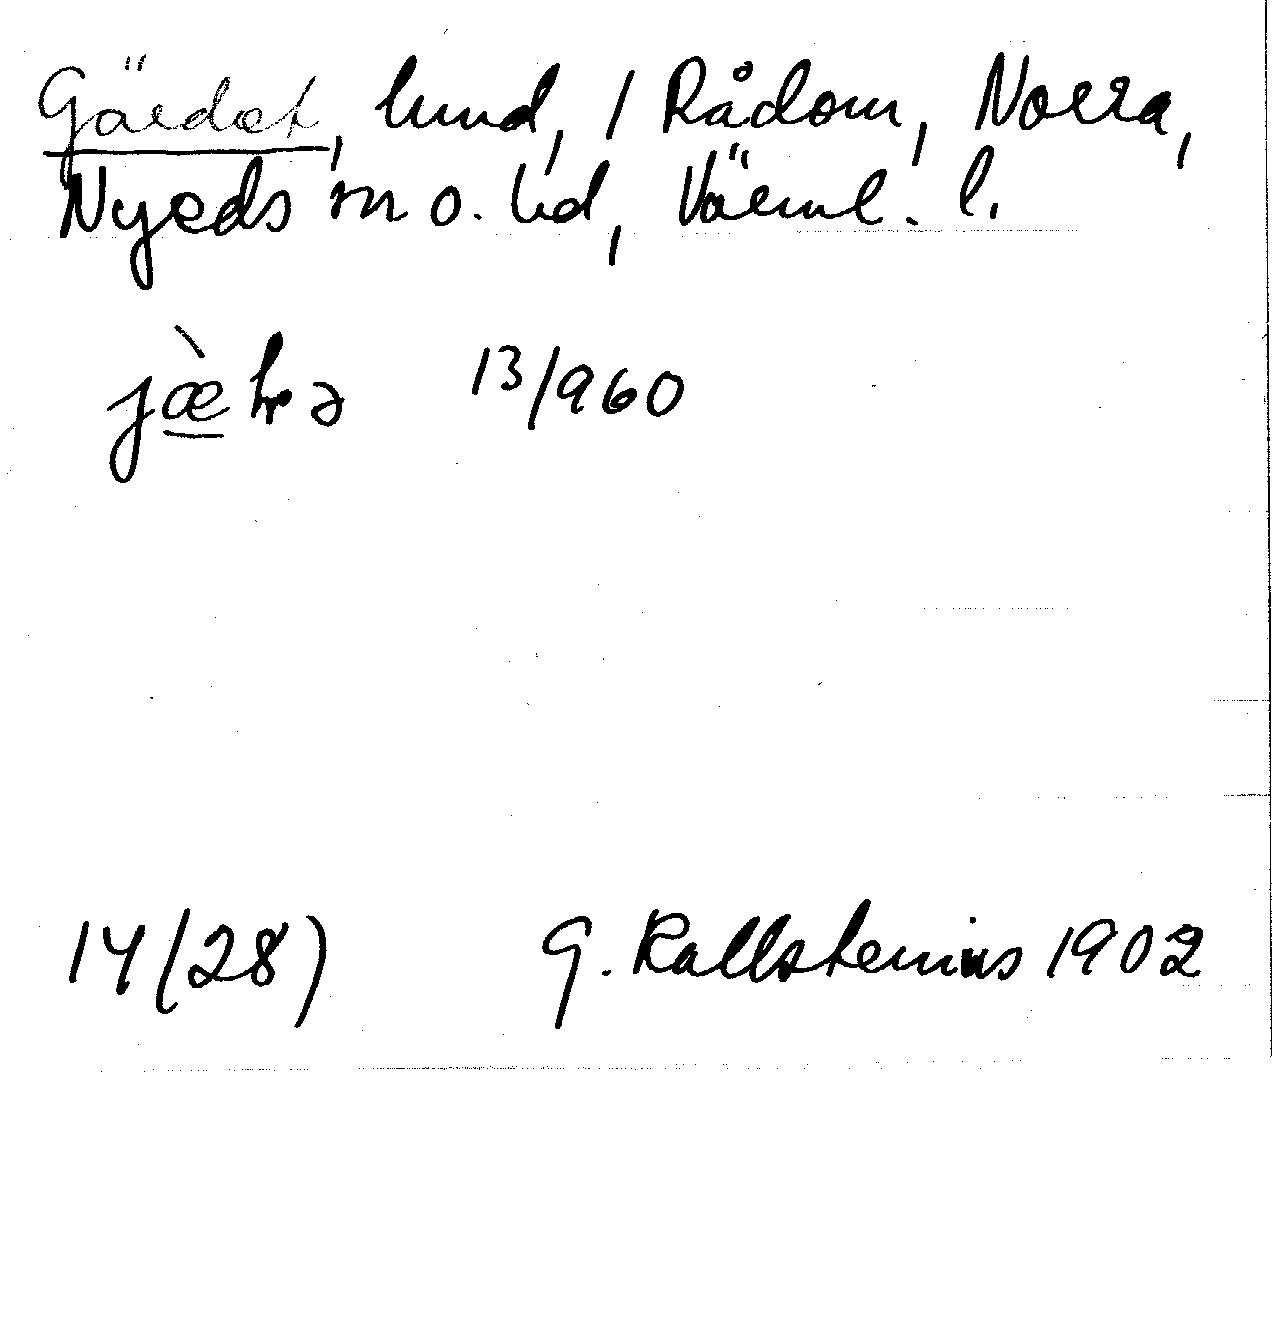 Gärdet, hmd, / Rådom, Norra,
Nyeds sn o. hd, Värml. l.
13/960
14(28) G. Kallstenius 1902